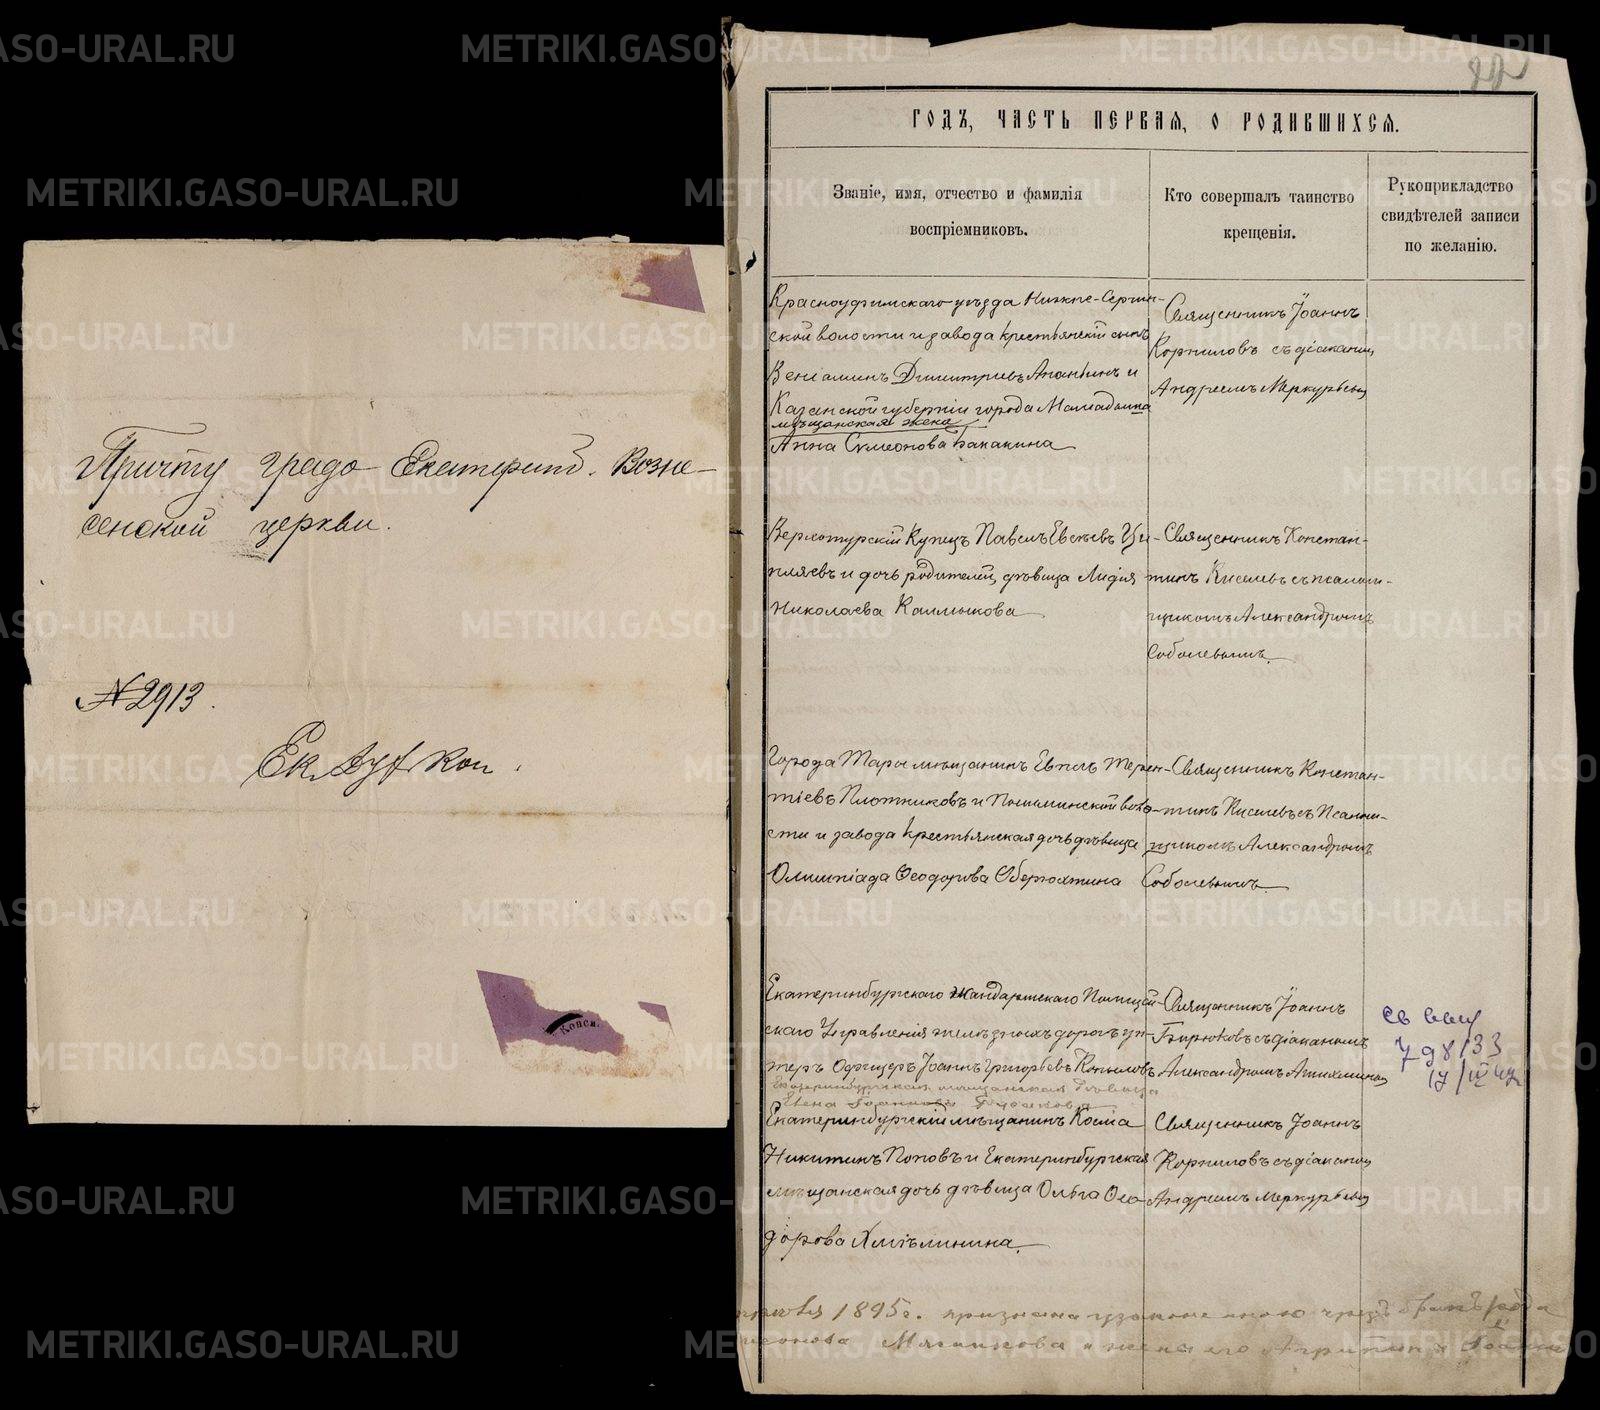 Причту градо-Екатеринб. Возне-
сенской церкви.
№2913.
Консі.
ГОДЪ, ЧАСТЬ ПЕРВАЯ, О РОДИВШИХСЯ.
Званіе, имя, отчество и фамилія
воспріемниковъ.
Кто совершалъ таинство
крещенія.
Рукоприкладство
свидѣтелей записи
по желанію.
Красноуфимскаго уѣзда Нижне-Сергин-
ской волости и завода крестьянскій сынъ
Веніаминъ Димитріевъ Ананьинъ и
Казанской губерніи города Мамадыша
мѣщанская жена
Анна Сумеонова Бакакина
Священникъ Іоаннъ
Корниловъ съ діакономъ
Андреемъ Меркурьевымъ
Верхотурскій Купецъ Павелъ Евсѣевъ Ци-
пляевъ и дочь родителей дѣвица Лидія
Николаева Калмыкова
Священникъ Констан-
тинъ Киселевъ съ псалом-
щикомъ Александромъ
Соболевымъ.
Города Тары мѣщанинъ Евпсъ Терен-
тіевъ Плотниковъ и Пышминской воло-
сти и завода крестьянская дочь дѣвица
Олимпіада Ѳеодорова Оберюхтина
Священникъ Констан-
тинъ Киселевъ съ Псаломщ-
щикомъ Александромъ
Соболевымъ.
Екатеринбургскаго Жандармскаго Полицей-
скаго Управленія желѣзныхъ дорогъ ун-
теръ Офицеръ Іоаннъ Григорьевъ Копыловъ
Екатеринбургская мѣщанская дѣвица
Елена Іоаннова
Священникъ Іоаннъ
Бирюковъ съ діакономъ
Александромъ
17/III
Екатеринбургскій мѣщанинъ Косма
Никитинъ Поповъ и Екатеринбургская
мѣщанская дочь дѣвица Ольга Ѳео-
дорова Хмѣлинина.
Священникъ Іоаннъ
Корниловъ съ діакономъ
Андреемъ Меркурьевымъ
1895г. признана узаконенною чрезъ бракъ
Мясникова и жена его
METRIKI.GASO-URAL.RU